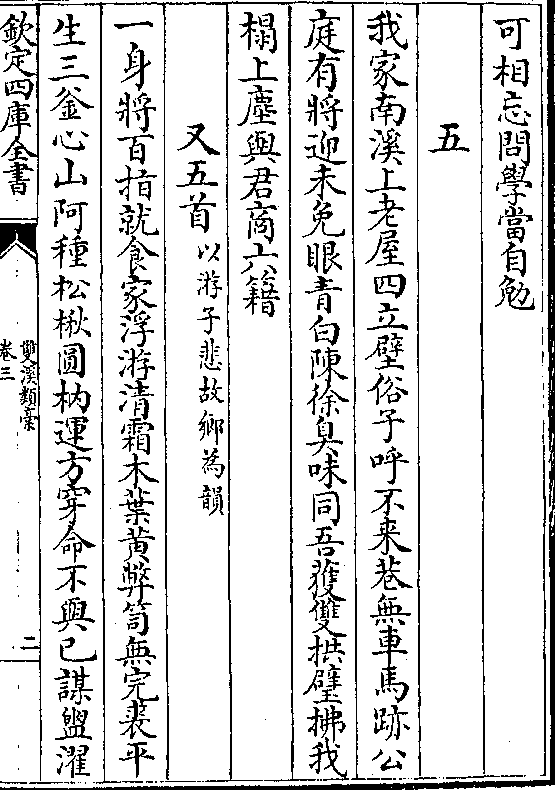 可相忘問學當自勉
五
我家南溪上老屋四立壁俗子呼不来巷無車馬跡公
庭有將迎未免眼青白陳徐臭味同吾獲雙拱璧拂我
榻上塵與君商六籍
又五首以游子悲故鄉為韻
一身將百指就食家浮游清霜木葉黄弊笥無完裘平
生三釜心山阿種松楸圓枘運方穿命不與已謀盥濯
欽定四庫全書
雙溪類槀
卷三
二